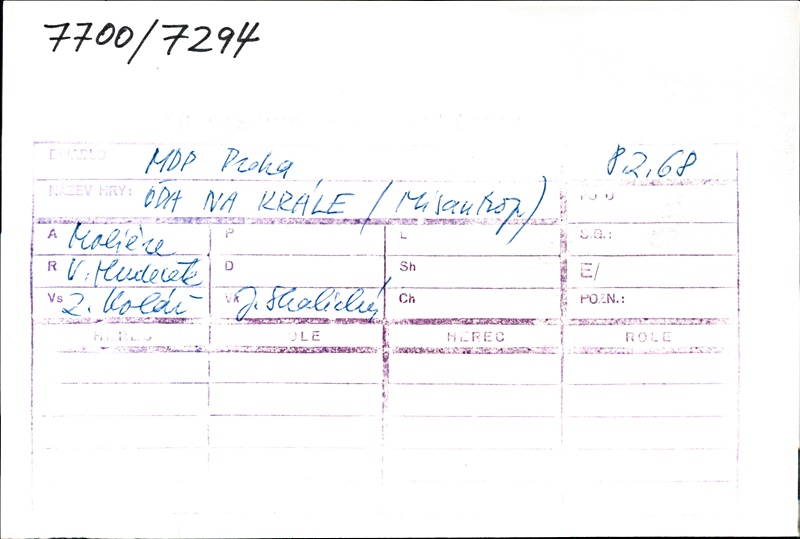 7700/7294
DIVADLO MDP Praha 8.2.68
NÁZEV HRY: ÓDA NA KRÁLE (Misantrop)
A Molière P L S.G.:
R V. Hudeček D Sh E/
Vs Z. Kolář Vk J. Skalický Ch POZN.:
HEREC ROLE HEREC ROLE